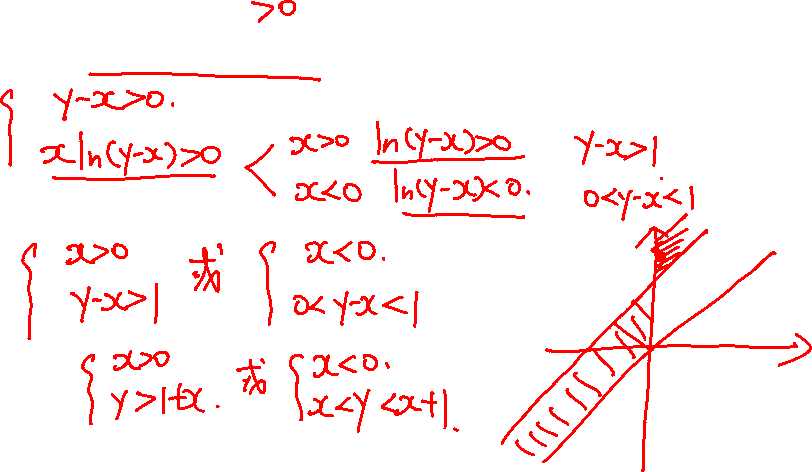 >0
y-x>0.
x ln(y-x)>0 < x>0 ln(y-x)>0 y-x>1
x<0 ln(y-x)<0. 0<y-x<1
{ x>0 或 { x<0.
y-x>1 0<y-x<1
{ x>0 或 { x<0.
y>1+x. x<y<x+1.